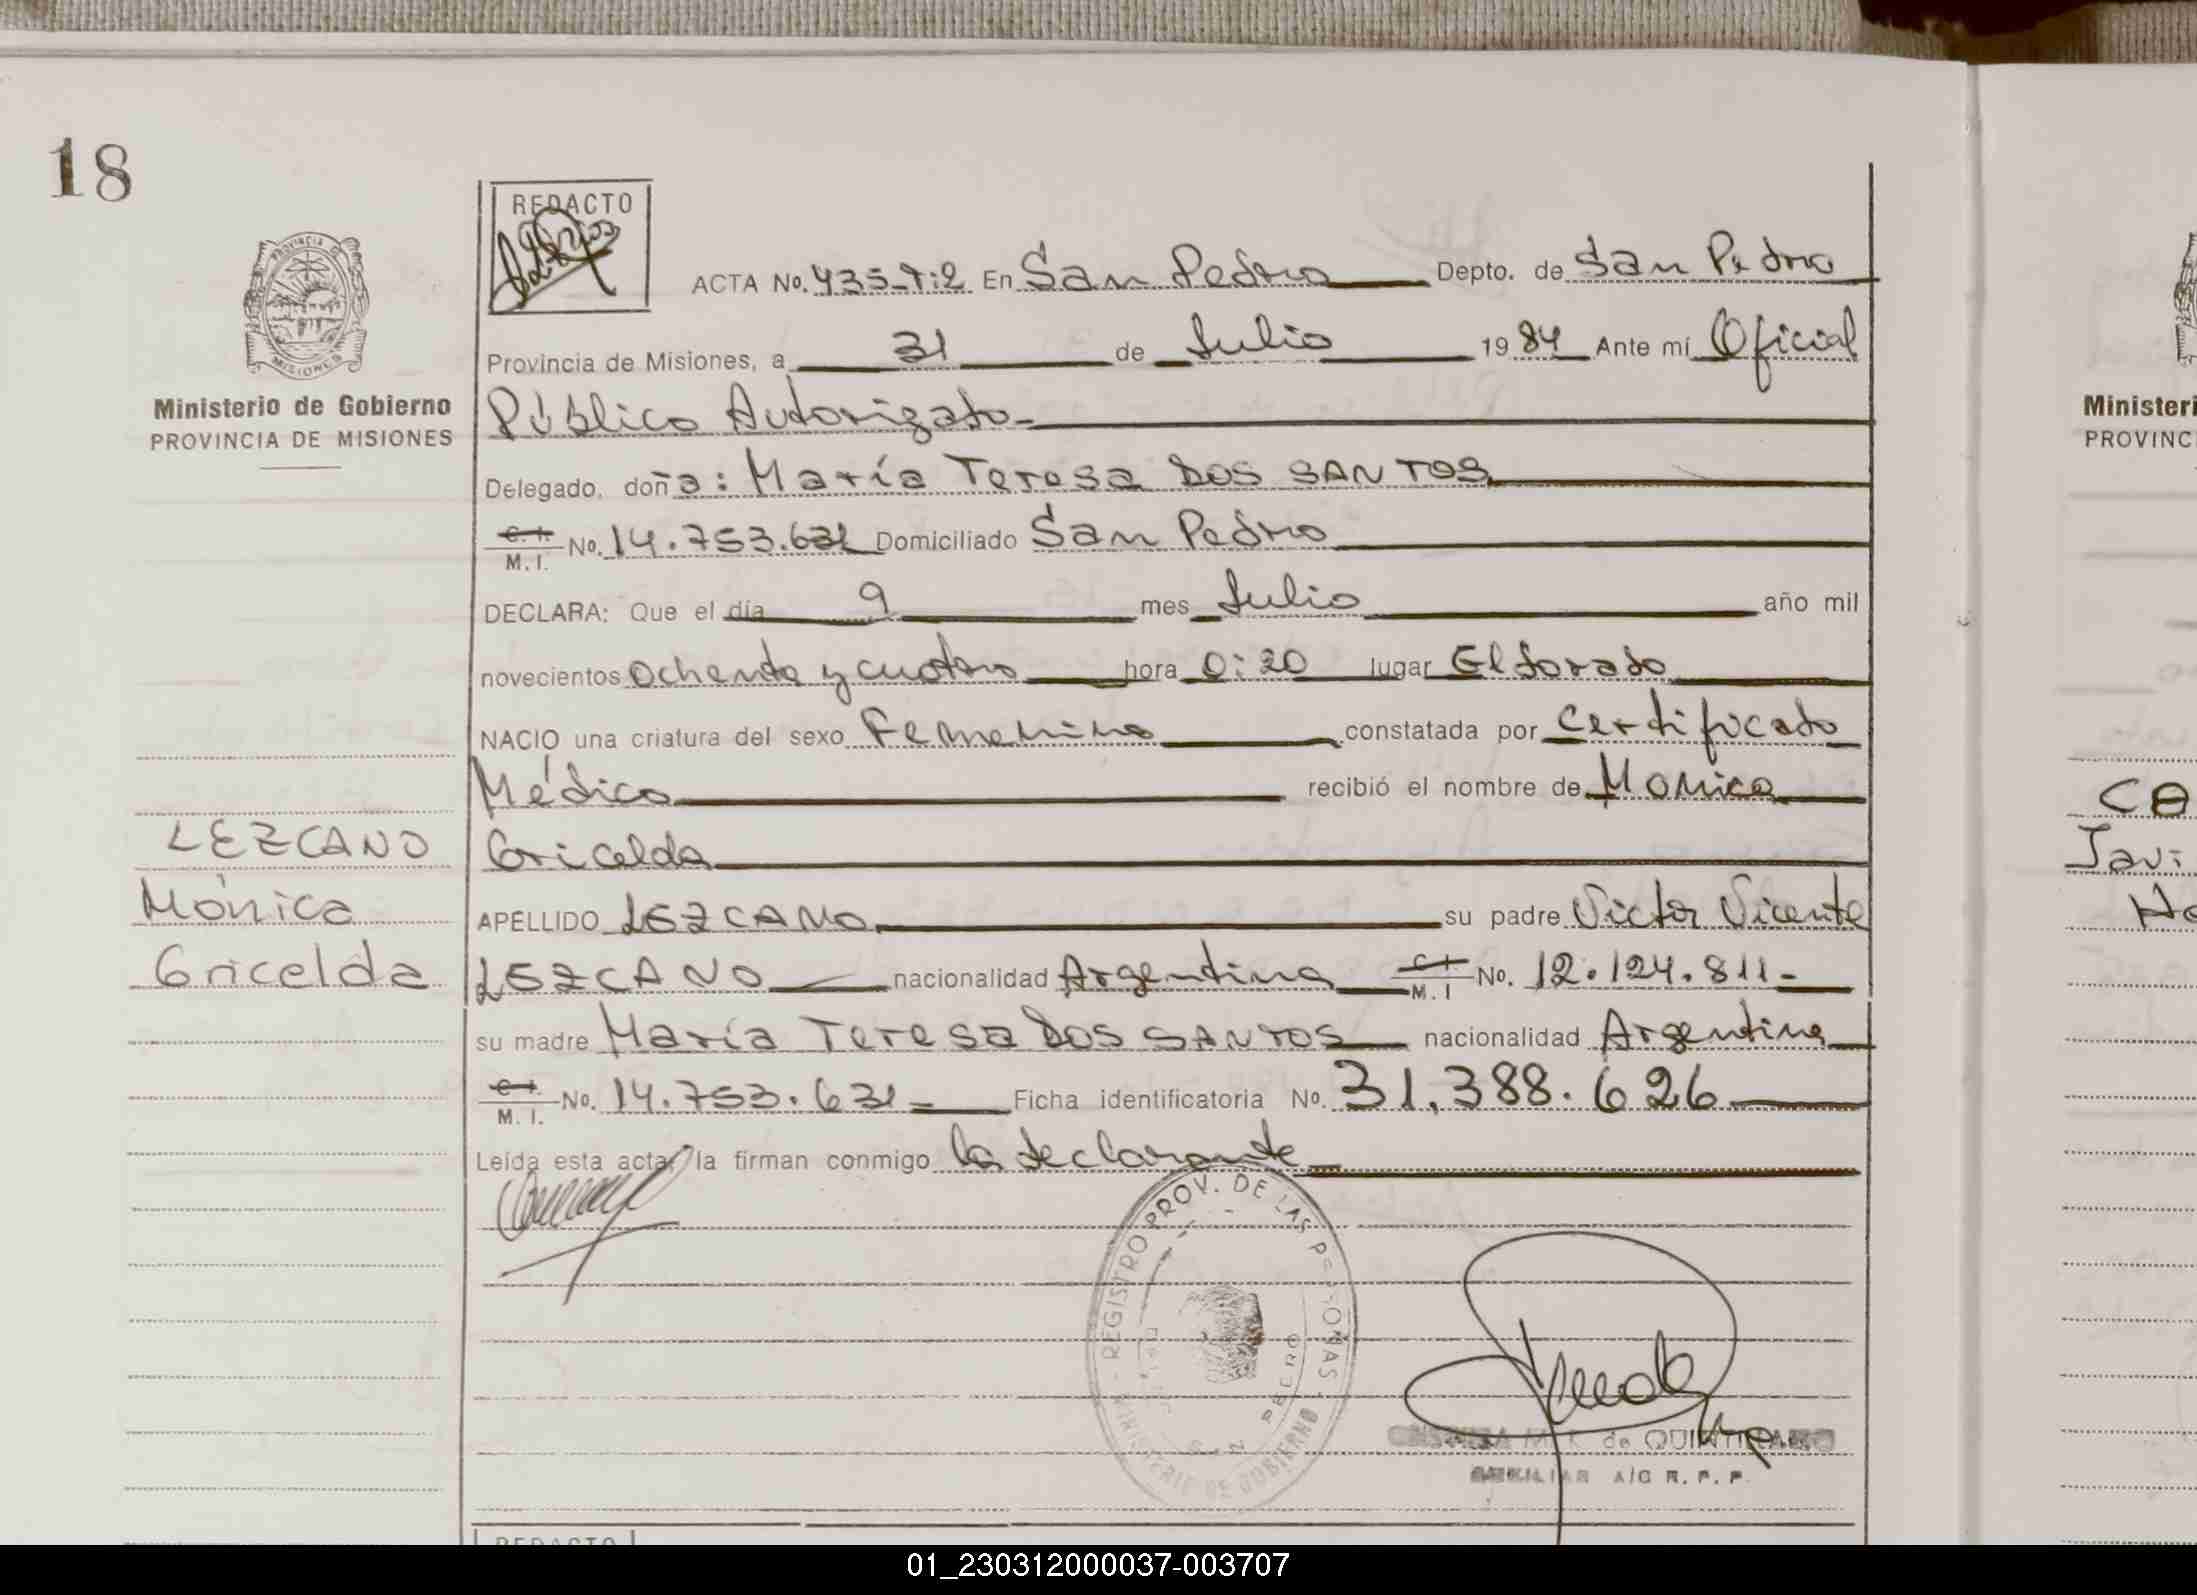 18
REDACTO
PROVINCIA DE
MISIONES
ACTA No. 435-T:2 En San Pedro Depto. de San Pedro
Provincia de Misiones, a 31 de Julio 1984 Ante mí Oficial
Ministerio de Gobierno
PROVINCIA DE MISIONES
Público Autorizado-
Delegado, doña: María Teresa DOS SANTOS
C. I. M. I. No. 14.753.631 Domiciliado San Pedro
DECLARA: Que el día 9 mes Julio año mil
novecientos ochenta y cuatro hora 0:20 lugar Eldorado
NACIO una criatura del sexo Femenino constatada por Certificado
Médico recibió el nombre de Monica
Gricelda
LEZCANO
Mónica
Gricelda
APELLIDO LEZCANO su padre Victor Vicente
LEZCANO nacionalidad Argentina C I M. I No. 12.124.811-
su madre María Teresa DOS SANTOS nacionalidad Argentina
C I. M. I. No. 14.753.631- Ficha identificatoria No. 31.388.626
Leída esta acta, la firman conmigo la declarante
REGISTRO PROV. DE LAS PERSONAS
MINISTERIO DE GOBIERNO
SAN PEDRO
de QUINTIRANO
AUXILIAR A/C R. P. P.
REDACTO
Ministeri
PROVINC
CA
Javi
01_230312000037-003707